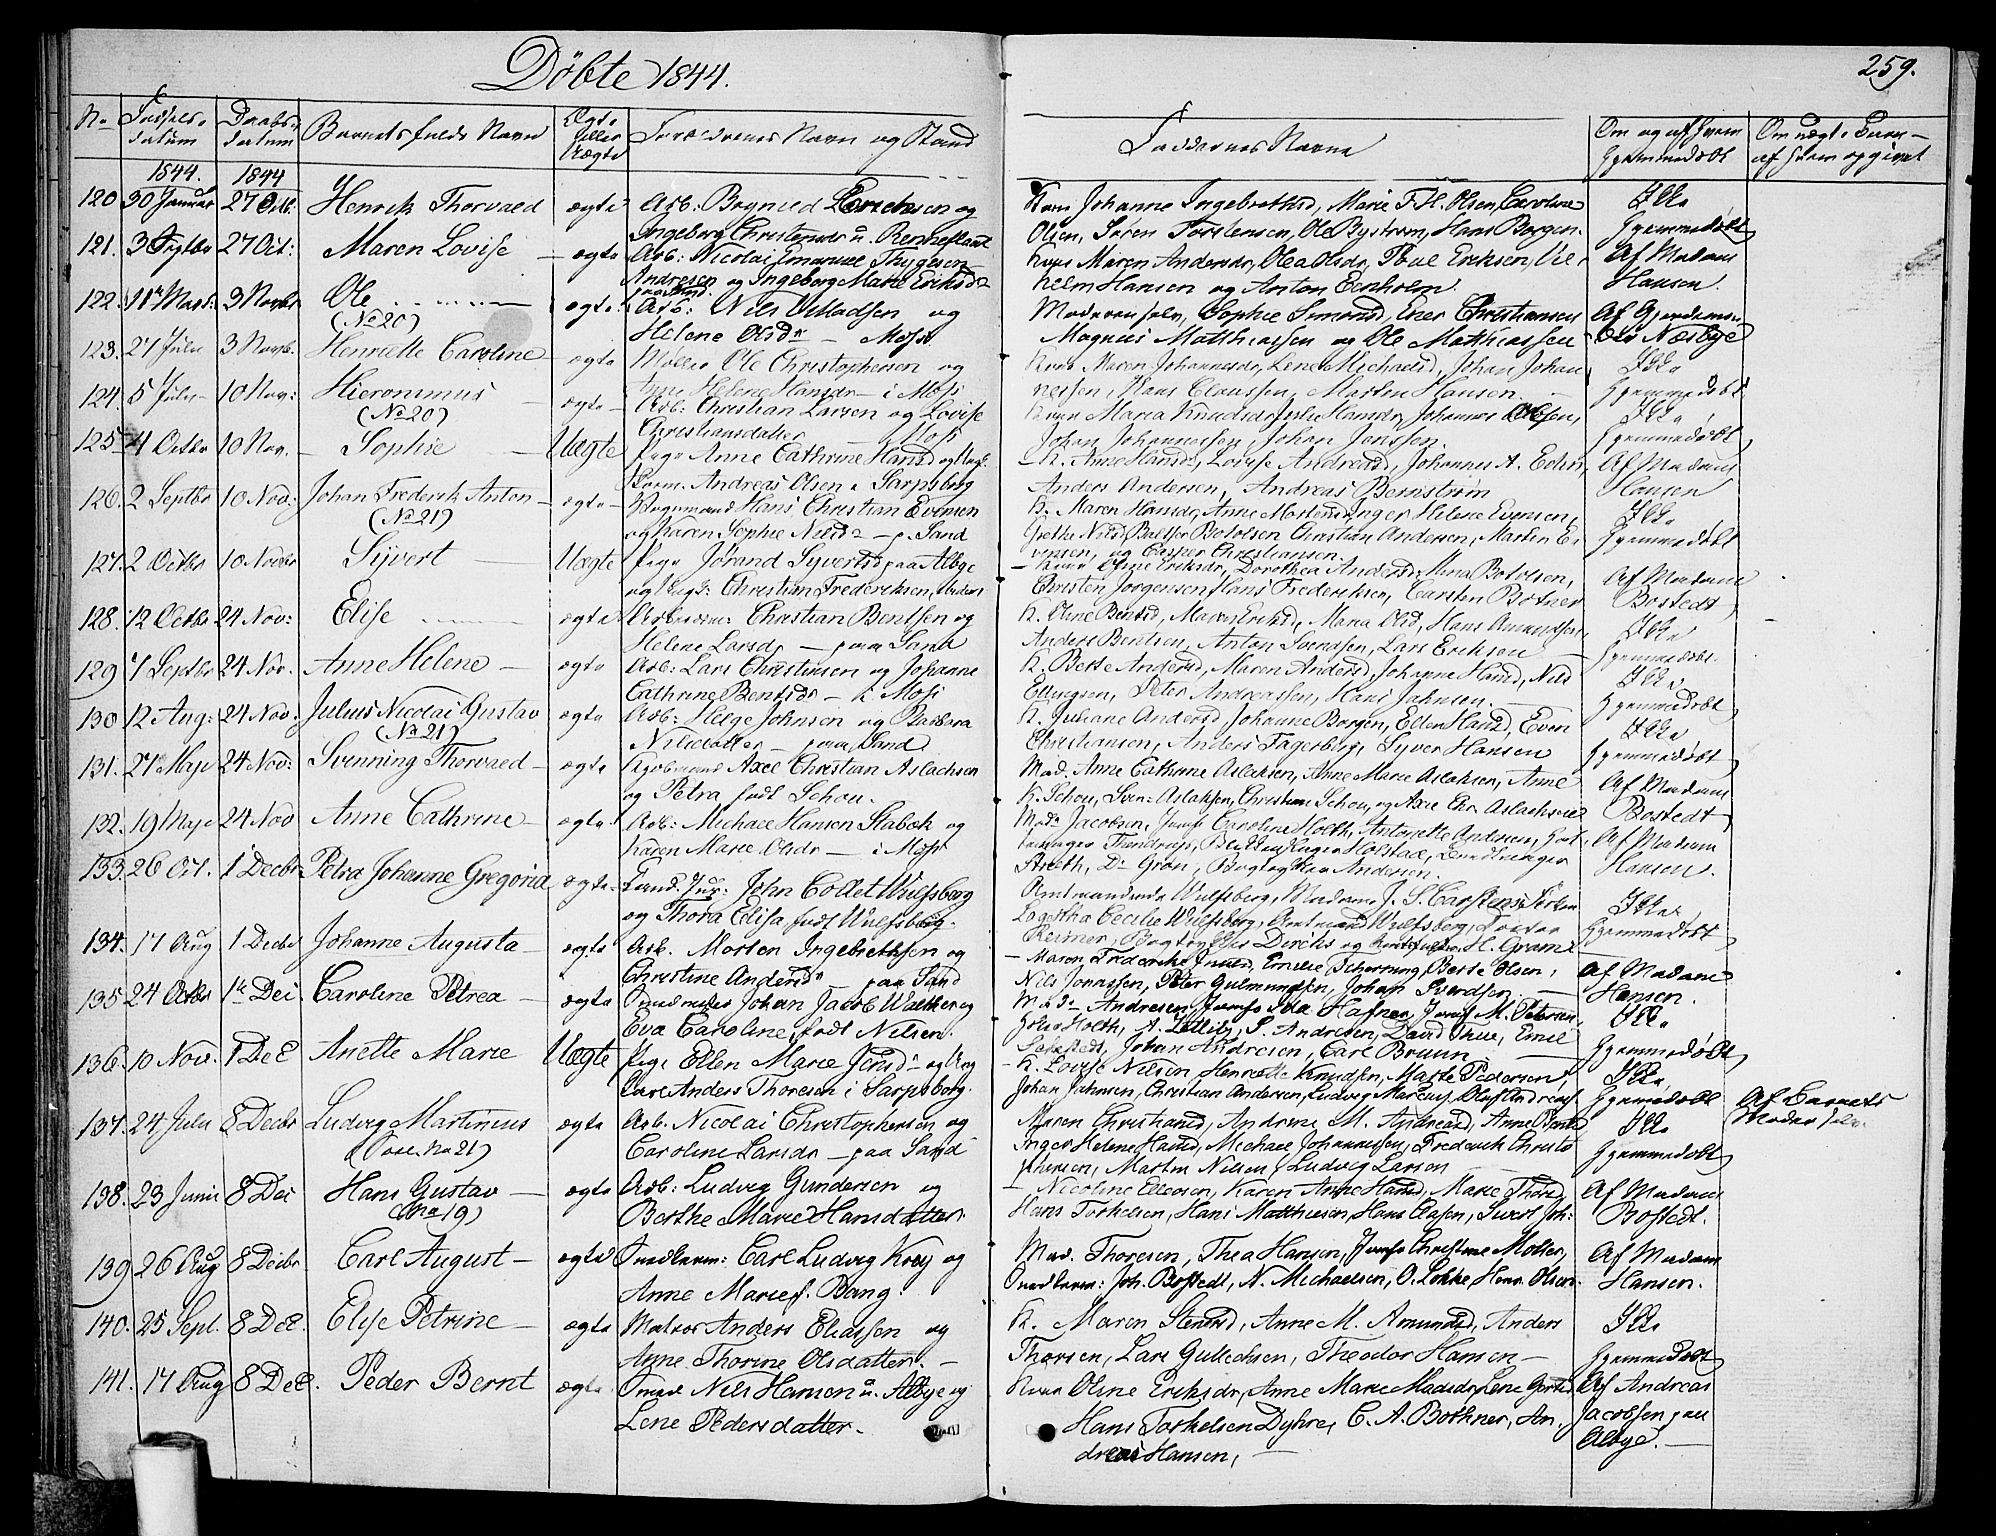 Döbte 1844.
259.
No Fødsels- datum Daabs- datum Barnets fulde Navn Ægte eller Uægte Forældrenes Navn og Stand
Faddernes Navne
Om og af hvem hjemmedøbt
Om uægte Barn - af hvem opgivet
1844. 1844
120 30 Januar 27 Octb. Henrik Thorvald ægte Arb: Brynild Erichsen og
Ingeborg Christensdr u. Rennefladt
Kone Johanne Ingebrethsd, Marie F. H. Olsen, Caroline
Olsen, Sören Torstensen, Ole Byström, Hans Borgen.
Ikke
hjemmedøbt
121. 3 Septbr 27 Oct: Maren Lovise - ægte Arb: Nicolai Emanuel Thygesen
Andresen og Ingeborg Marie Eriksd
paa Sand.
Kone Maren Andersdr, Olea Olsdr, Poul Eriksen, Vil-
helm Hansen og Anton Eenholm.
Af Madam
Hansen.
122. 11te Mars: 3 Novbr Ole
(No 20)
ægte. Arb: Nils O. Madsen og
Helene Olsdr - Moss
Moderen selv, Sophie Simonsd, Ener Christiansen
Magnus Matthiassen og Ole Matthiassen
Af Gjordemor
Næsbye
123. 27 Julii 3 Novb. Henriette Caroline - ægte Møller Ole Christophersen og
Anne Helene Hansdr - i Moss
Kone Maren Johannesdr, Lene Michaelsd, Johan Johan-
nessen, Hans Claussen, Martin Hansen. -
Ikke
hjemmedøbt
124. 5 Julii - 10 Nov: Hieronimus
(No 20)
ægte - Arb: Christian Larsen og Lovise
Christiansdatter Moss
Kone Maria Knudsdr, Hansdr, Johannes Olsen,
Johan Johannessen, Johan Jenssen.
Ikke
hjemmedøbt
125. 4 Octbr 10 Nov. - Sophie - Uægte Pige Anne Cathrine Hansd og Ungk.
Andreas Olsen i Sarpsborg
- K. Anne Hansd, Lovise Andreasd, Johannes A. Edin,
Anders Andersen, Andreas Bernström
Af Madam
Hansen
126. 2 Septbr 10 Nov: Johan Frederik Anton -
(No 21)
ægte - Hans Christian Evensen
og Karen Sophie Nilsd - p. Sand
K. Maren Hansdr, Anne Mortensd, Inger Helene Evensen,
Grethe Nilsd, Baltser Botolsen, Christian Andersen, Martin E-
vensen, og Casper Christiansen.
Ikke
hjemmedøbt
127. 2 Octbr 10 Novbr Syvert - Uægte Pige Jörand Syvertsd paa Albye
og Ungk: Christian Frederiksen,
- Kone Oline Eriksdr, Dorothea Andersd, Mina Botolsen,
Christen Jørgensen, Hans Frederiksen, Carsten Botner
Af Madam
Bostedt
128. 12 Octbr 24 Nov: Elise ægte Christian Bentsen og
Helene Larsd - paa Sand
K. Oline Bentsd, Maren Eriksd, Maria Olsd, Hans Amundsen
Anders Bentsen, Anton Svendsen, Lars Eriksen -
Ikke
hjemmedøbt.
129 7 Septbr 24 Nov. Anne Helene - ægte Arb: Lars Christensen og Johanne
Cathrine Bentsdr - i Moss
K. Berte Andersd, Maren Andersd, Johanne Hansd, Nils
Ellingsen, Peter Andreassen, Hans Jahnsen.
Ikke
hjemmedøbt
130 12 Aug: 24 Nov: Julius Nicolai Gustav
(No 21)
ægte Arb: Helge Johnsen og Barbara
Nilsdatter - paa Sand
K. Juliane Andersd, Johanne Borgen, Ellen Hansd, Even
Christiansen, Anders Fagerberg, Syver Hansen
Ikke
hjemmedøbt
131. 27 Maje 24 Nov: Svenning Thorvald - ægte Kjøbmand Axel Christian Aslachsen
og Petra født Schou.
Mad. Anne Cathrine Aslaksen, Anne Marie Aslaksen, Anne
K. Schou, Sven: Aslaksen, Christian Schou, og Axel Chr. Aslachsen
Af Madam
Bostedt
132. 19 Maje 24 Nov Anne Cathrine - ægte. Arb: Michael Hansen Stabek og
Karen Marie Olsdr - i Moss
Mad Jacobsen, Jomf Caroline Holth, Antonette Andresen,
Af Madam
Hansen.
133. 26 Oct. 1 Decbr Petra Johanne Gregoria ægte - Cand. Jur: John Collet Wulfsberg
og Thora Elisa født Wulfsberg.
Amtmandinde Wulfsberg, Madame J. S. Carstens,
Lagertha Cecilie Wulfsberg, Amtmand Wulfsberg, Doctor
Reimer, Bogtrykker Dirchs og H. Gram
Ikke
hjemmedøbt
134. 17 Aug 1 Decbr Johanne Augusta - ægte Arb. Morten Ingebrethsen og
Christine Andersd paa Sand
- Maren Frederikke Juulsd, Emilie Scherning, Berte Olsen,
Nils Jonassen, Peter Gulmundsen, Johan Svendsen. -
Af Madam
Hansen.
135 24 Octbr 1te Dec Caroline Petrea - ægte Johan Jacob Walther og
Eva Caroline født Nilsen.
Mad Andresen, Jomf Ida Hafner, Jomf M. Petersen,
Holth, A. S. Andresen, David Thue, Emil
Johan Andresen, Carl Bruun
Ikke
hjemmedøbt
136. 10 Nov. 1 Dec Anette Marie Uægte Pige Ellen Marie Jensd og Ung
Carl Anders Thoresen i Sarpsborg.
- K. Lovise Nilsen, Henrette Knudsen, Marte Pedersen,
Johan Jahnsen, Christian Andersen, Ludvig Marcus, Oluf Andreas.
Ikke
hjemmedøbt
Af Barnets
Moder selv.
137. 24 Julii 8 Decbr Ludvig Martinius
(No 21)
ægte Arb. Nicolai Christophersen og
Caroline Larsdr - paa Sand
Maren Christiansd, Andrine M. Andreasd, Anne Bentsd
Inger Helene Hansd, Michael Johannessen, Frederich Christo
phersen, Martin Nilsen, Ludvig Larsen
Ikke
hjemmedøbt
138. 23 Junii 8 Dec Hans Gustav -
(No 19)
ægte Arb: Ludvig Gundersen og
Berthe Marie Hansdatter.
- Nicoline Ellevsen, Karen Anne Hansd, Marie Thorsd,
Hans Torkelsen, Hans Matthiesen, Hans Olasen, Sivert Joh:
Af Madam
Bostedt.
139 26 Aug 8 Decbr Carl August - ægte Carl Ludvig Krey og
Anne Marie f. Bang.
Mad. Thoresen, Thea Hansen, Jomf Christine Moller,
Joh. Bostedt, N. Michaelsen, O. Lokke, Hans Olsen.
Af Madam
Hansen.
140. 25 Sept. 8 Dec. Elise Petrine - ægte Matros Anders Eliassen og
Anne Thorine Olsdatter. -
K. Maren Stensd, Anne M. Amundsd, Anders
Thorsen, Lars Gullechsen, Theodor Hansen -
Ikke
hjemmedøbt
141. 17 Aug 8 Dec. Peder Bernt ægte. Nils Hansen u. Albye og
Lene Pedersdatter.
Kone Oline Eriksdr, Anne Marie Madsdr, Lene Gertsd
Hans Torkelsen Dyhre, C. A. Bothner, An-
dreas Hansen,
Af Andreas
Jacobsen paa
Albye.